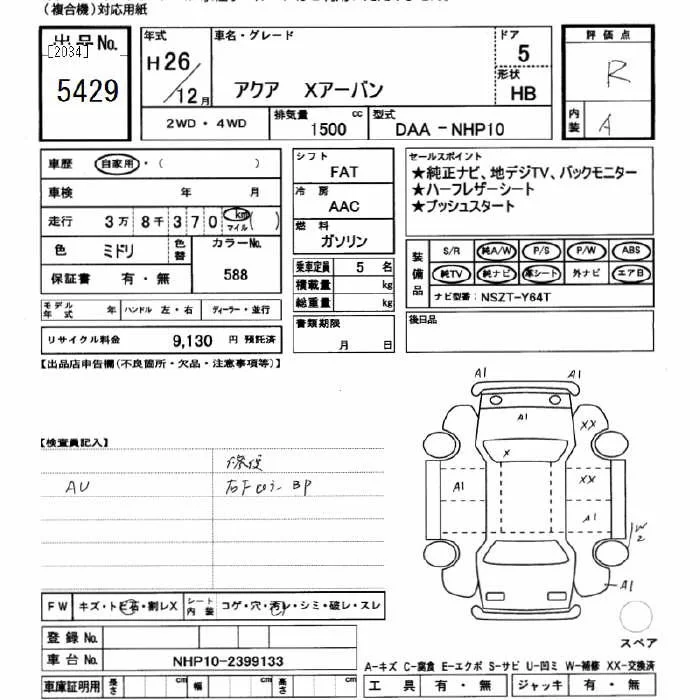 (複合機)対応用紙
出品No.
[2034]
5429
年式
H26/12月
車名・グレード
アクア Xアーバン
ドア
5
形状
HB
評価点
R
内装
A
2WD・4WD
排気量
1500 cc
型式
DAA-NHP10
車歴 自家用・( )
車検 年 月
走行 3万 8千 370 km マイル ( )
色 ミドリ
色替
カラーNo.
588
保証書 有・無
モデル年式 年
ハンドル 左・右
ディーラー・並行
リサイクル料金 9,130 円 預託済
シフト
FAT
冷房
AAC
燃料
ガソリン
乗車定員 5 名
積載量 kg
総重量 kg
書類期限
月 日
セールスポイント
★純正ナビ、地デジTV、バックモニター
★ハーフレザーシート
★プッシュスタート
装備品
S/R 純A/W P/S P/W ABS
純TV 純ナビ 革シート 外ナビ エアB
ナビ型番: NSZT-Y64T
後日品
【出品店申告欄(不良箇所・欠品・注意事項等)】
【検査員記入】
AU
BP
A1
A1
A1
XX
X
A1
XX
A1
W2
A1
スペア
FW
キズ・トビ石・割レX
シート内装
コゲ・穴・汚レ・シミ・破レ・スレ
登録No.
車台No.
NHP10-2399133
車庫証明用
長さ cm
幅 cm
高さ cm
A-キズ C-腐食 E-エクボ S-サビ U-凹ミ W-補修 XX-交換済
工具 有・無
ジャッキ 有・無